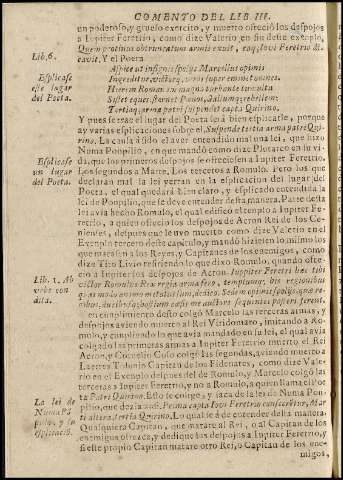 COMENTO DEL LIB III.
un poderoso, y gruelo exercito, y muerto ofreciò los despojos
a Iupiter Feretrio, como dize Valerio en fin deste exemplo,
Quem protinus obtruncatum armis exuit, eaq, Iovi Feretrio di-
cavit, Y el Poeta
Lib. 6.
Aspice ut insignis spolijs Marcellus opimis
Ingreditur, victorq, viros super eminet omnes.
Hic rem Romanam magno turbante tumultu
Sistet eques, sternet Poenos, Gallumq; rebellem:
Tertiaq, arma patri suspendet capta Quirino.
Esplicase
este lugar
del Poeta.
Y pues se trae el lugar del Poeta serà bien esplicarle, porque
ay varias esplicaciones sobre el, Suspendet tertia arma patri Qui-
rino. La causa a sido el aver entendido mal una lei, que hizo
Numa Pompilio, en que mandò como dize Plutarco en su vi-
da, que los primeros despojos se ofreciesen a Iupiter Feretrio.
Los segundos a Marte. Los terceros a Romulo. Pero los que
declaran mal la lei yerran en la esplicacion del lugar del
Poeta, el qual quedarà bien claro, y esplicado entendida la
lei de Pompilio, que se deve entender desta manera. Parte desta
lei avia hecho Romulo, el qual edificò el templo a Iupiter Fe-
retrio, a quien ofreciò los despojos de Acron Rei de los Ce-
ninenses, despues que le uvo muerto como dize Valerio en el
Exemplo tercero deste capitulo, y mandò hiziesen lo mismo los
que matasen a los Reyes, y Capitanes de los enemigos, como
dize Tito Livio refiriendo lo que dixo Romulo, quando ofre-
cio a Iupiter los despojos de Acron. Iuppiter Feretri haec tibi
victor Romulus Rex regia arma fero, templumq; his regionibus
Esplicase
un lugar
del Poeta.
Lib. 1. Ab
urbe con
dita.
en cumplimiento desto colgò Marcelo las terceras armas, y
despojos aviendo muerto al Rei Viridomaro, imitando a Ro-
mulo, y cumpliendo lo que avia mandado en su lei, el qual avia
colgado las primeras armas a Iupiter Feretrio muerto el Rei
Acron, y Cornelio Coso colgò las segundas, aviendo muerto a
Laertes Tolunio Capitan de los Fidenates, como dize Vale-
rio en el Exemplo despues del de Romulo, y Marcelo colgò las
terceras a Iupiter Feretrio, y no a Romulo, a quien llama el Poe-
ta Patri Quirino. Esto se colige, y saca de la lei de Numa Pom-
pilio, que dezia ansi. Prima capta Iovi Feretrio consecrentur, Mar
ti altera, tertia Quirino. Lo qual se à de entender desta manera.
Qualquiera Capitan, que matare al Rei, o al Capitan de los
enemigos ofrezca, y dedique los despojos a Iupiter Feretrio, y
si este propio Capitan matare otro Rei, o Capitan de los ene-
migos,
La lei de
Numa Pō
pilio, y su
esplicaciō.